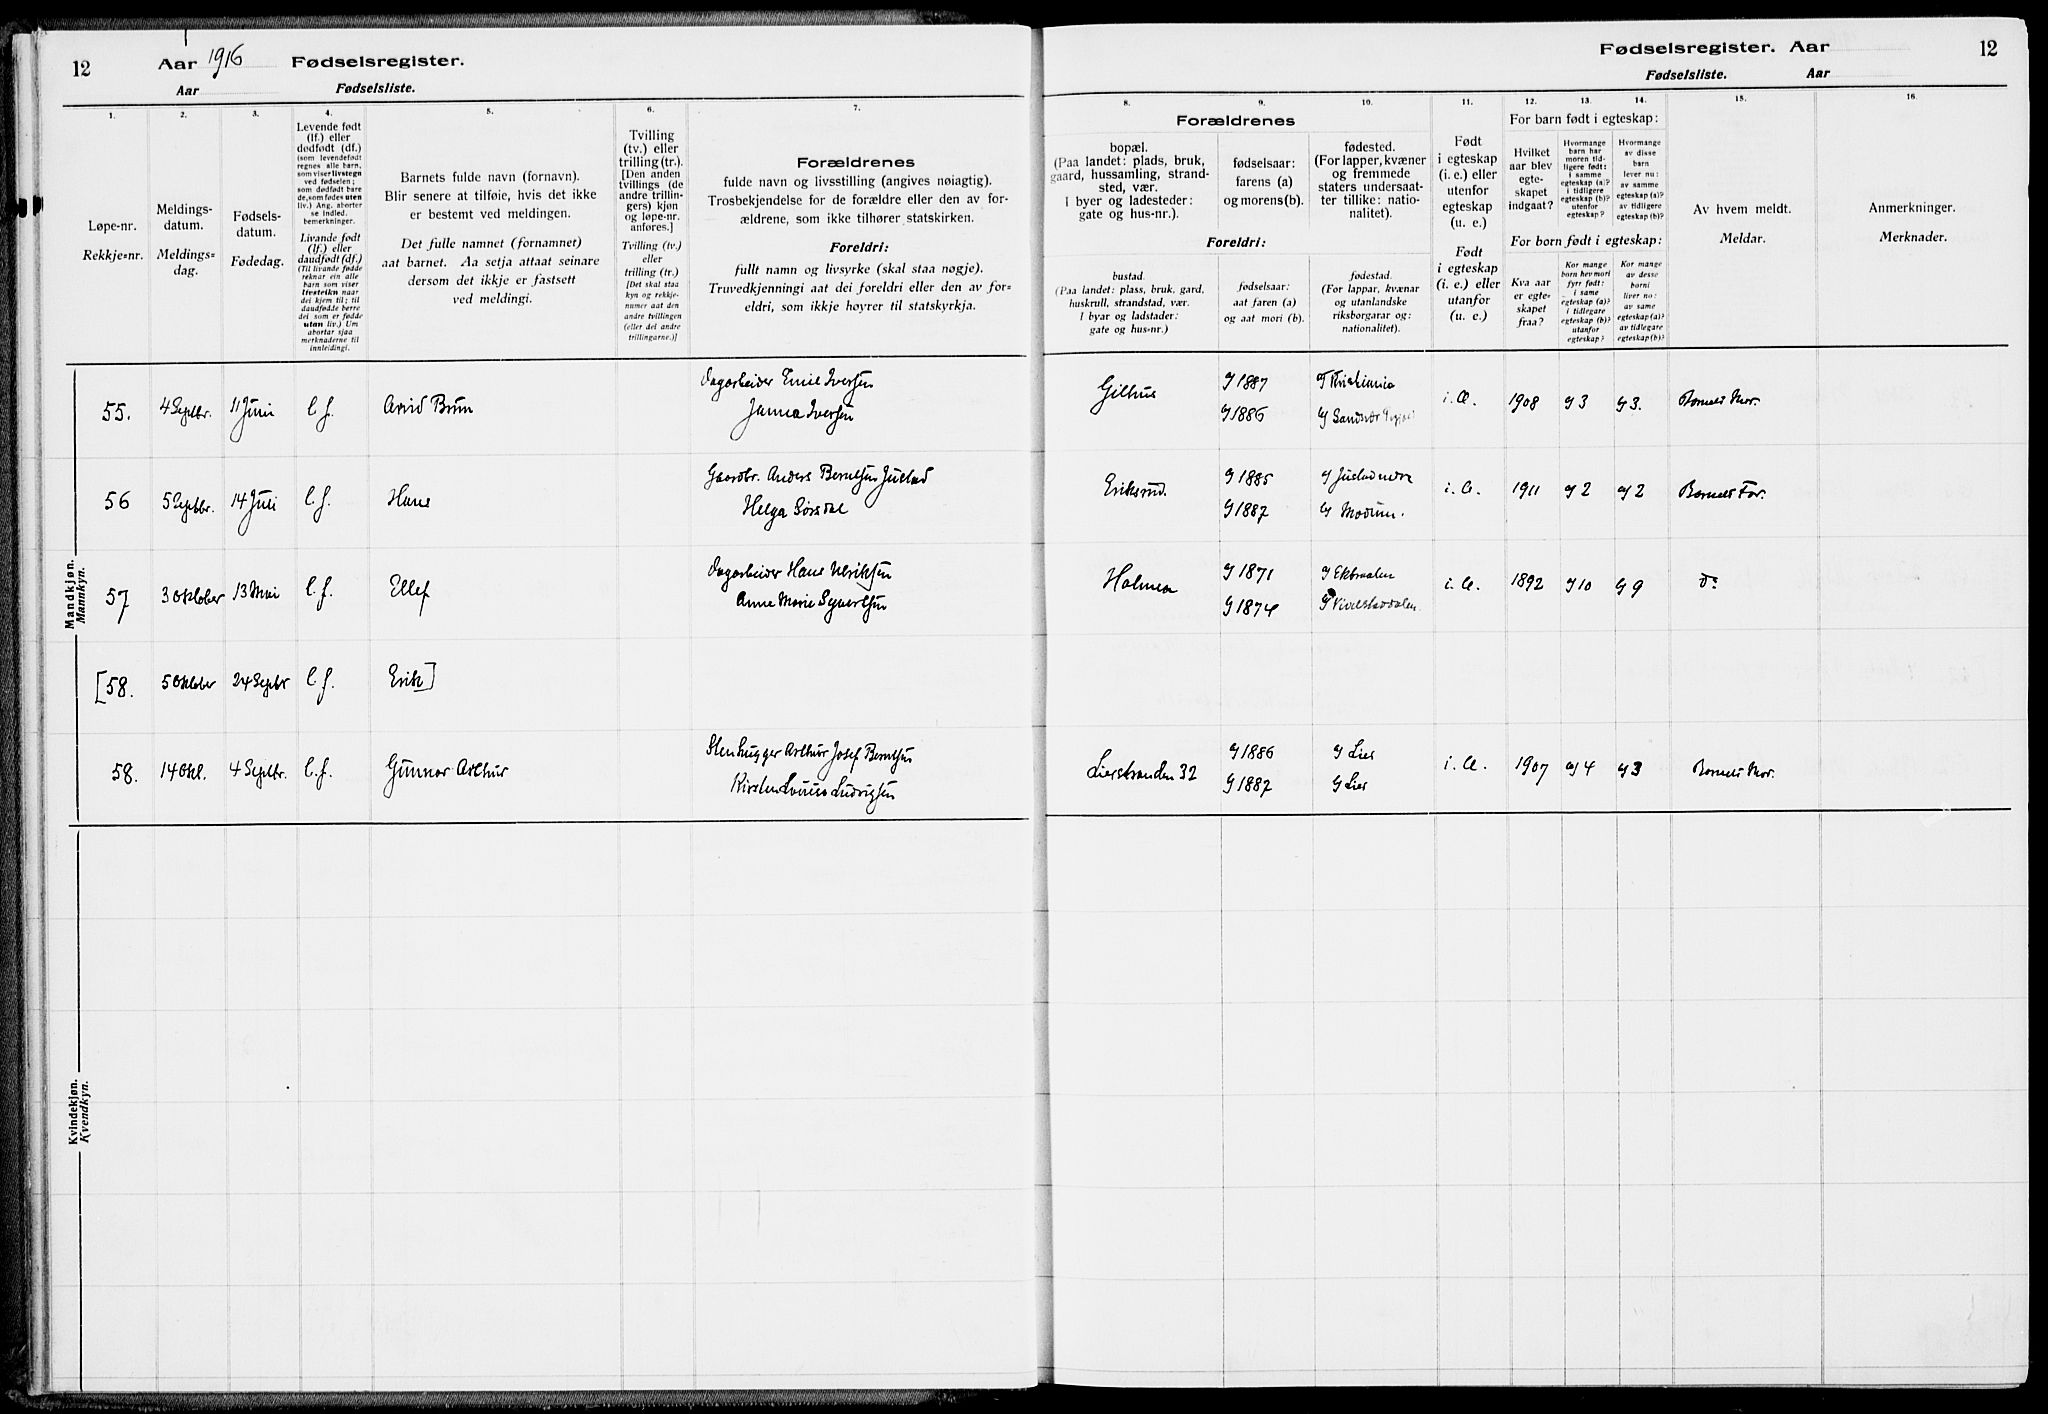 12 Aar 1916 Fødselsregister.
Aar Fødselsliste.
Fødselsregister. Aar 12
Fødselsliste. Aar
1.
Løpe-nr.
Rekkje=nr.
2.
Meldings-
datum.
Meldings=
dag.
3.
Fødsels-
datum.
Fødedag.
4.
Levende født
(lf.) eller
dødfødt (df.)
(som levendefødt
regnes alle barn,
som viser livstegn
ved fødselen;
som dødfødt bare
de, som fødes uten
liv.) Ang. aborter
se indled.
bemerkninger.
Livande født
(lf.) eller
daudfødt (df.)
(Til livande fødde
reknar ein alle
barn som viser
livsteikn naar
dei kjem til; til
daudfødde berre
dei som er fødde
utan liv.) Um
abortar sjaa
merknaderne til
innleidingi.
5.
Barnets fulde navn (fornavn).
Blir senere at tilføie, hvis det ikke
er bestemt ved meldingen.
Det fulle namnet (fornamnet)
aat barnet. Aa setja attaat seinare
dersom det ikkje er fastsett
ved meldingi.
6.
Tvilling
(tv.) eller
trilling (tr.).
[Den anden
tvillings (de
andre trillin-
gers) kjøn
og løpe-nr.
anføres.]
Tvilling (tv.)
eller
trilling (tr.)
[Det skal staa
kyn og rekkje-
numer aat den
andre tvillingen
(eller dei andre
trillingarne.)]
7.
Forældrenes
fulde navn og livsstilling (angives nøiagtig).
Trosbekjendelse for de forældre eller den av for-
ældrene, som ikke tilhører statskirken.
Foreldri:
fullt namn og livsyrke (skal staa nøgje).
Truvedkjenningi aat dei foreldri eller den av for=
eldri, som ikkje høyrer til statskyrkja.
Forældrenes
8.
bopæl.
(Paa landet: plads, bruk,
gaard, hussamling, strand-
sted, vær.
I byer og ladesteder:
gate og hus-nr.).
9.
fødselsaar:
farens (a)
og morens (b).
10.
fødested.
(For lapper, kvæner
og fremmede
staters undersaat-
ter tillike: natio-
nalitet).
Foreldri:
bustad.
(Paa landet: plass, bruk, gard,
huskrull, strandstad, vær.
I byar og ladstader:
gate og hus-nr.)
fødselsaar:
aat faren (a)
og aat mori (b).
fødestad.
(For lappar, kvænar
og utanlandske
riksborgarar og:
nationalitet).
11.
Født
i egteskap
(i. e.) eller
utenfor
egteskap
(u. e.)
Født
i egteskap
(i. e.) eller
utanfor
(u. e.)
For barn født i egteskap:
12.
Hvilket
aar blev
egte-
skapet
indgaat?
13.
Hvormange
barn har
moren tid-
ligere født:
i samme
egteskap (a)?
i tidligere
egteskap (b)?
utenfor
egteskap?
14.
Hvormange
av disse
barn
lever nu:
av samme
egteskap (a)?
av tidligere
egteskap (b)?
For born født i egteskap:
Kva aar
er egte-
skapet
fraa?
Kor mange
born hev mori
fyrr født:
i same
egteskap (a)?
i tidlegare
egteskap (b)?
utanfor
egteskap?
Kor mange
av desse
borni
liver no:
av same
egteskap (a)?
av tidlegare
egteskap (b)?
15.
Av hvem meldt.
Meldar.
16.
Anmerkninger.
Merknader.
Mandkjøn.
Mannkyn.
55. 4 Septbr. 11 Juni l.f. Arvid Brun Dagarbeider Emil Iversen Gilhus 1887 Kristiania i.E. 1908 3 3. Barnets Mor.
Janna Iversen 1886
56 5 Septbr. 14 Juli l.f. Hans Gaardbr. Anders Berntsen Justad Eriksrud. 1885 i.E. 1911 2 2 Barnets Far.
Helga Sørsdal 1887 Modum.
57 3 Oktober 13 Mai l.f. Ellef Dagarbeider Hans Ulriksen Holmen 1871 i.E. 1892 10 9 Do
Anne Marie Syvertsen 1874
[58. 5 Oktober 24 Septbr l.f. Erik]
58. 14 Okt. 4 Septbr. l.f. Gunnar Arthur Stenhugger Arthur Josef Berntsen Lierstranden 32 1886 Lier i.E. 1907 4 3 Barnets Mor.
Kirsten Lovisa Ludvigsen 1887 Lier
Kvindekjøn.
Kvendkyn.